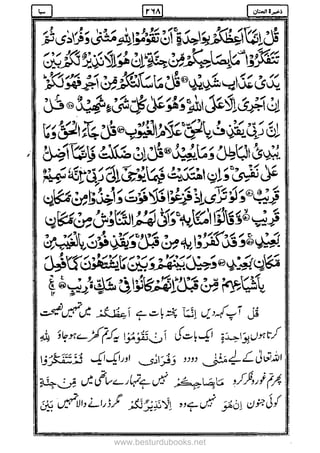 ذخیرۃ الجنان ۲٦۸ سبا
قُلْ اِنَّمَاۤ اَعِظُكُمْ بِوَاحِدَةٍ ۚ اَنْ تَقُوْمُوْا لِلّٰهِ مَثْنٰى وَفُرَادٰى ثُمَّ
تَتَفَكَّرُوْا ۫ مَا بِصَاحِبِكُمْ مِّنْ جِنَّةٍ ؕ اِنْ هُوَ اِلَّا نَذِيْرٌ لَّكُمْ بَيْنَ
يَدَيْ عَذَابٍ شَدِيْدٍ قُلْ مَا سَاَلْتُكُمْ مِّنْ اَجْرٍ فَهُوَ لَكُمْ ؕ
اِنْ اَجْرِيَ اِلَّا عَلَى اللّٰهِ ۚ وَهُوَ عَلٰى كُلِّ شَيْءٍ شَهِيْدٌ قُلْ
اِنَّ رَبِّيْ يَقْذِفُ بِالْحَقِّ ۚ عَلَّامُ الْغُيُوْبِ قُلْ جَآءَ الْحَقُّ وَمَا
يُبْدِئُ الْبَاطِلُ وَمَا يُعِيْدُ قُلْ اِنْ ضَلَلْتُ فَاِنَّمَاۤ اَضِلُّ
عَلٰى نَفْسِيْ ۚ وَاِنِ اهْتَدَيْتُ فَبِمَا يُوْحِيْۤ اِلَيَّ رَبِّيْ ؕ اِنَّهٗ سَمِيْعٌ
قَرِيْبٌ وَلَوْ تَرٰۤى اِذْ فَزِعُوْا فَلَا فَوْتَ وَاُخِذُوْا مِنْ مَّكَانٍ
قَرِيْبٍ وَّقَالُوْۤا اٰمَنَّا بِهٖ ۚ وَاَنّٰى لَهُمُ التَّنَاوُشُ مِنْ مَّكَانٍۭ
بَعِيْدٍ وَّقَدْ كَفَرُوْا بِهٖ مِنْ قَبْلُ ۚ وَيَقْذِفُوْنَ بِالْغَيْبِ مِنْ
مَّكَانٍۭ بَعِيْدٍ وَحِيْلَ بَيْنَهُمْ وَبَيْنَ مَا يَشْتَهُوْنَ كَمَا فُعِلَ
بِاَشْيَاعِهِمْ مِّنْ قَبْلُ ؕ اِنَّهُمْ كَانُوْا فِيْ شَكٍّ مُّرِيْبٍ
قُلْ آپ کہہ دیں اِنَّمَاۤ پختہ بات ہے اَعِظُكُمْ میں تمہیں نصیحت
کرتا ہوں بِوَاحِدَةٍ ایک بات کی اَنْ تَقُوْمُوْا یہ کہ تم کھڑے ہو جاؤ لِلّٰهِ
اللہ تعالیٰ کے لیے مَثْنٰى دو دو وَفُرَادٰى اور ایک ایک ثُمَّ تَتَفَكَّرُوْا
پھر تم غور و فکر کرو مَا بِصَاحِبِكُمْ نہیں ہے تمہارے ساتھی میں مِّنْ جِنَّةٍ
کوئی جنون اِنْ هُوَ نہیں ہے وہ اِلَّا نَذِيْرٌ لَّكُمْ مگر ڈرانے والا تمہیں بَيْنَ
www.besturdubooks.net